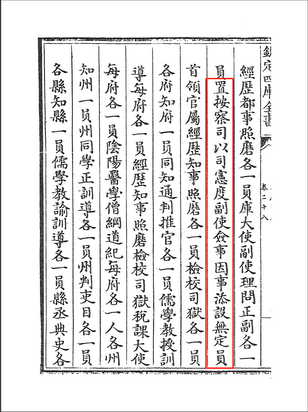 欽定四庫全書
卷二十八
經歷都事照磨各一員庫大使副使理問正副各一
員置按察司以司憲度副使僉事因事添設無定員
首領官屬經歷知事照磨各一員檢校司獄各一員
各府知府一員同知通判推官各一員儒學教授訓
導每府各一員經歷知事照磨檢校司獄稅課大使
每府各一員陰陽醫學僧綱道紀每府各一人各州
知州一員州同學正訓導各一員州判吏目各一員
各縣知縣一員儒學教諭訓導各一員縣丞典史各